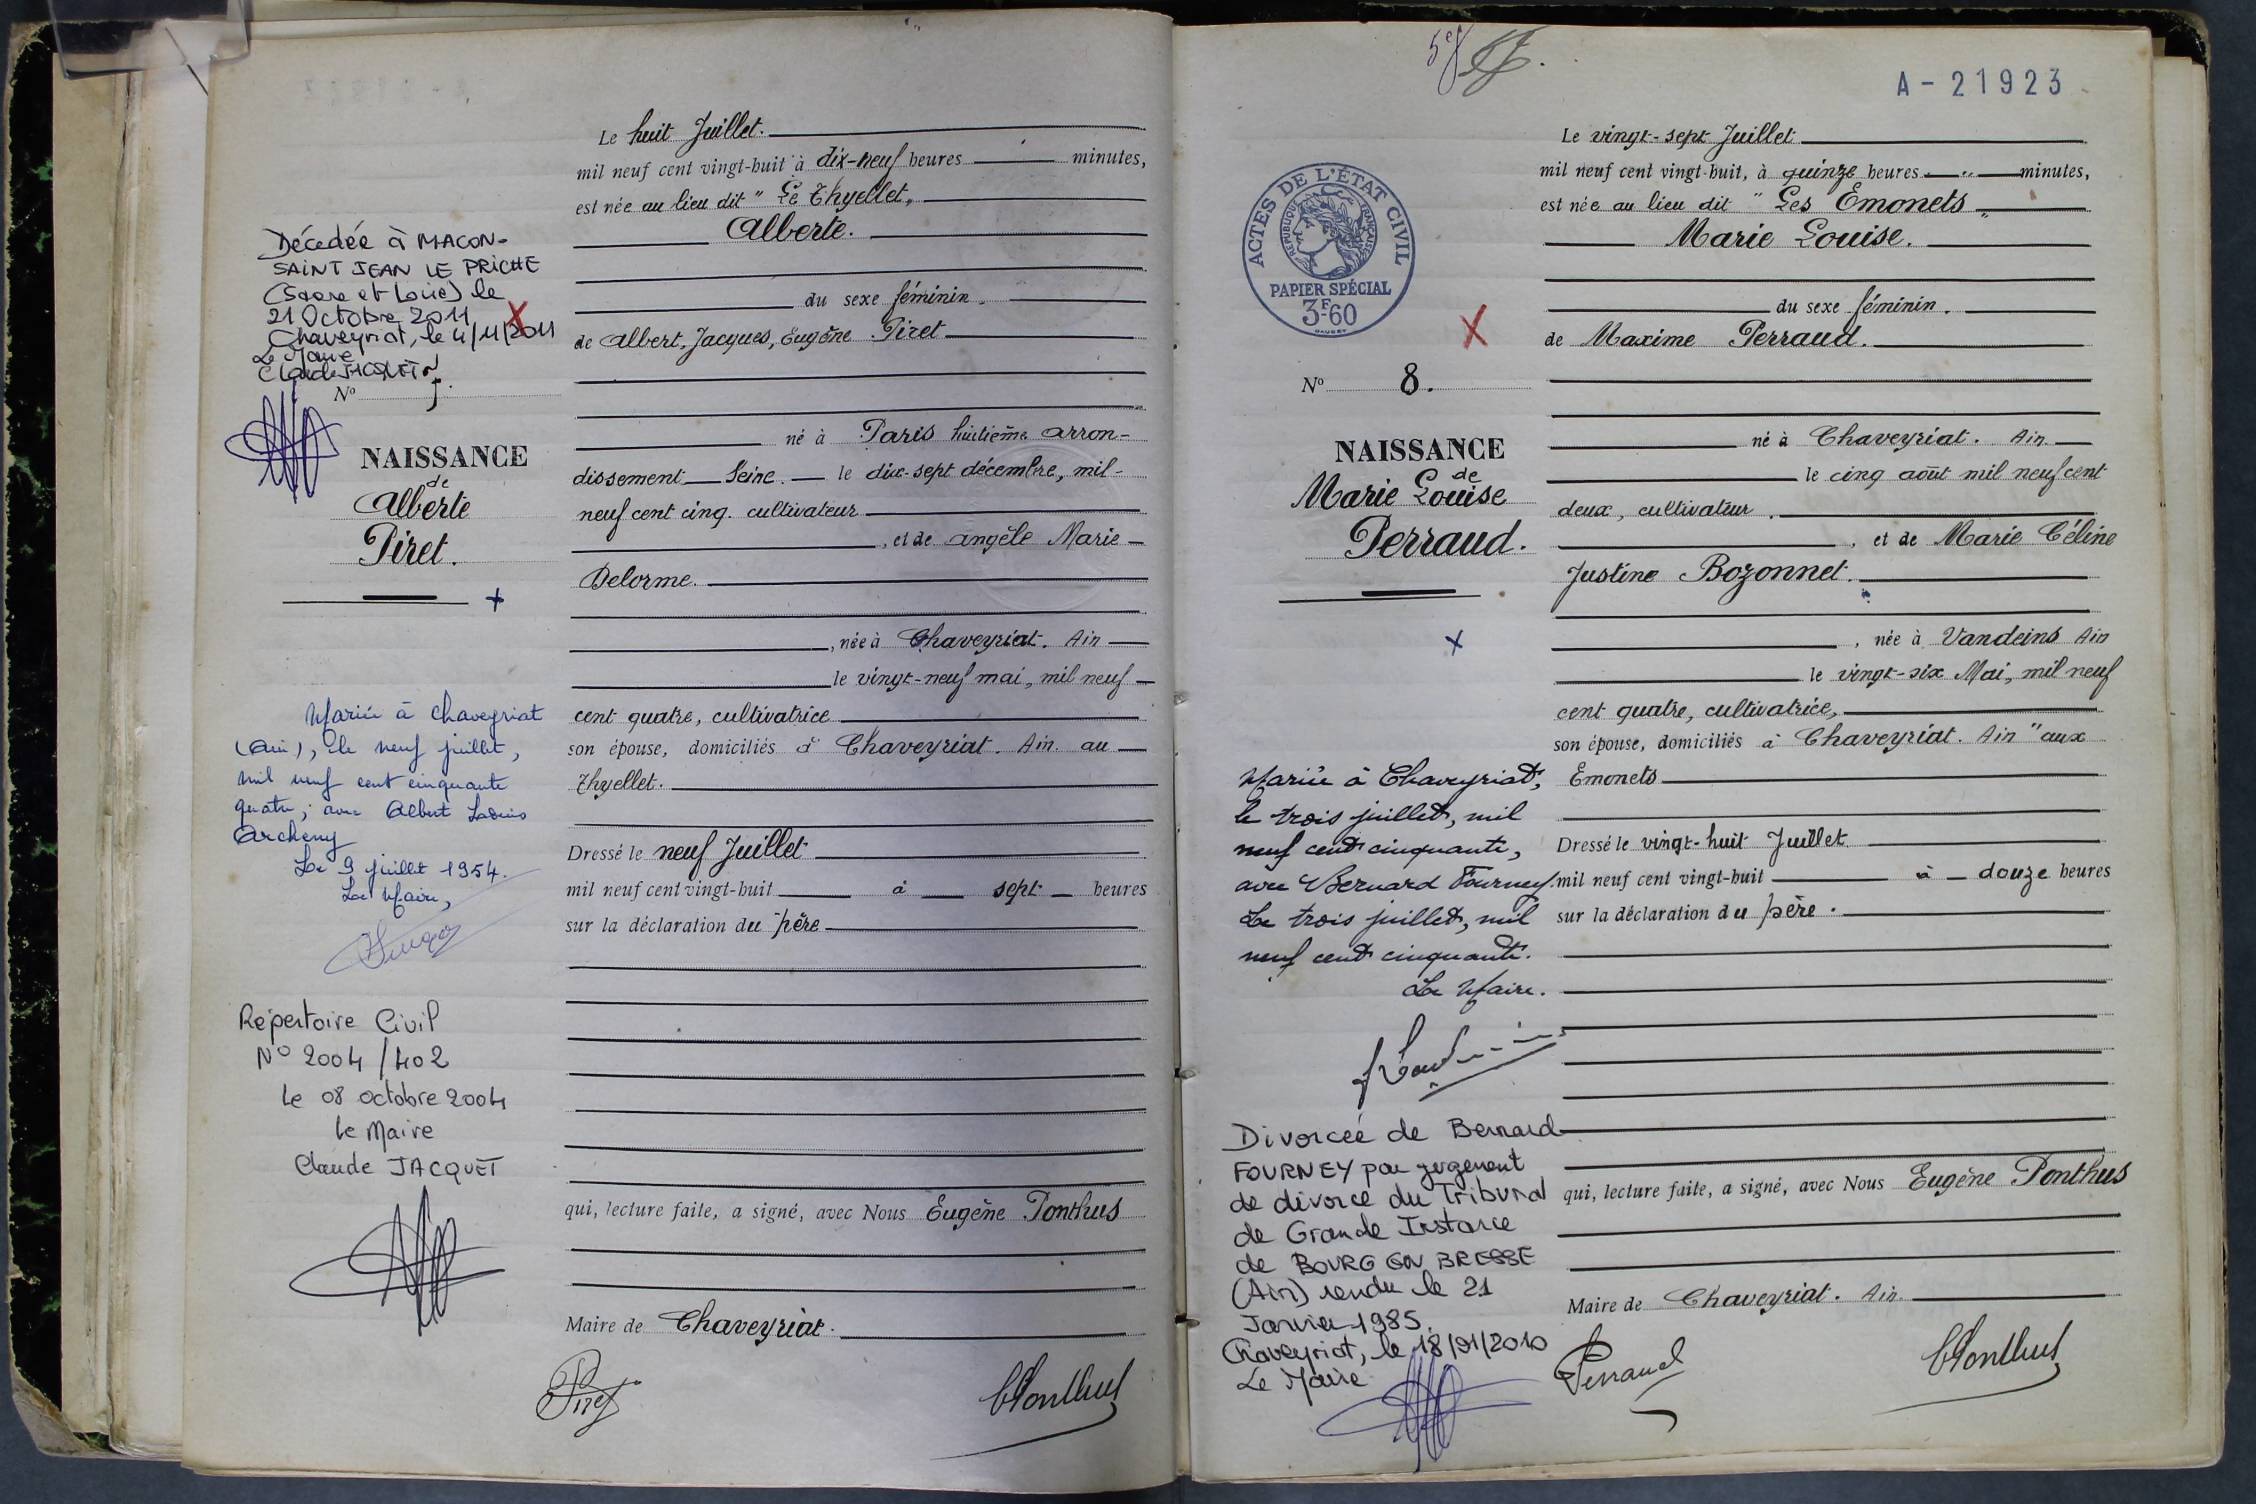 Le huit Juillet.
mil neuf cent vingt-huit à dix-neuf heures minutes,
est née au lieu dit " Le Thyellet,,
Alberte.
du sexe féminin.
de Albert, Jacques, Eugène Piret
né à Paris huitième arron-
dissement Seine. le dix-sept décembre, mil-
neuf cent cinq. cultivateur
, et de Angèle Marie
Delorme.
, née à Chaveyriat. Ain
le vingt-neuf mai, mil neuf
cent quatre, cultivatrice
son épouse, domiciliés à Chaveyriat. Ain. au
Thyellet.
Dressé le neuf Juillet
mil neuf cent vingt-huit à sept heures
sur la déclaration du père
qui, lecture faite, a signé, avec Nous Eugène Ponthus
Maire de Chaveyriat.
Piret
Ponthus
Décedée à MACON-
SAINT JEAN LE PRICHE
(Saone et Loire) le
21 Octobre 2011
Chaveyriat, le 4/11/2011
Le Maire
Claude JACQUET
N° 7.
NAISSANCE
de
Alberte
Piret.
Mariée à Chaveyriat
(Ain), le neuf juillet,
mil neuf cent cinquante
quatre, avec Albert
Archeny
Le 9 juillet 1954.
Le Maire,
Répertoire Civil
N° 2004/402
Le 08 octobre 2004
Le Maire
Claude JACQUET
5e
A-21923
ACTES DE L'ÉTAT CIVIL
RÉPUBLIQUE FRANÇAISE
PAPIER SPÉCIAL
3F60
N° 8.
NAISSANCE
de
Marie Louise
Perraud.
Le vingt-sept Juillet
mil neuf cent vingt-huit, à quinze heures " minutes,
est née au lieu dit " Les Emonets "
Marie Louise.
du sexe féminin.
de Maxime Perraud.
né à Chaveyriat. Ain
le cinq août mil neuf cent
deux, cultivateur.
, et de Marie Céline
Justine Bozonnet.
, née à Vandeins Ain
le vingt-six Mai, mil neuf
cent quatre, cultivatrice,
son épouse, domiciliés à Chaveyriat. Ain " aux
Emonets
Dressé le vingt-huit Juillet
mil neuf cent vingt-huit à douze heures
sur la déclaration du père.
qui, lecture faite, a signé, avec Nous Eugène Ponthus
Maire de Chaveyriat. Ain.
Perraud
Ponthus
Mariée à Chaveyriat,
le trois juillet, mil
neuf cent cinquante,
avec Bernard Fourney.
Le trois juillet, mil
neuf cent cinquante.
Le Maire.
Divorcée de Bernard
FOURNEY par jugement
de divorce du Tribunal
de Grande Instance
de BOURG EN BRESSE
(Ain) rendu le 21
Janvier 1985.
Chaveyriat, le 18/01/2010
Le Maire